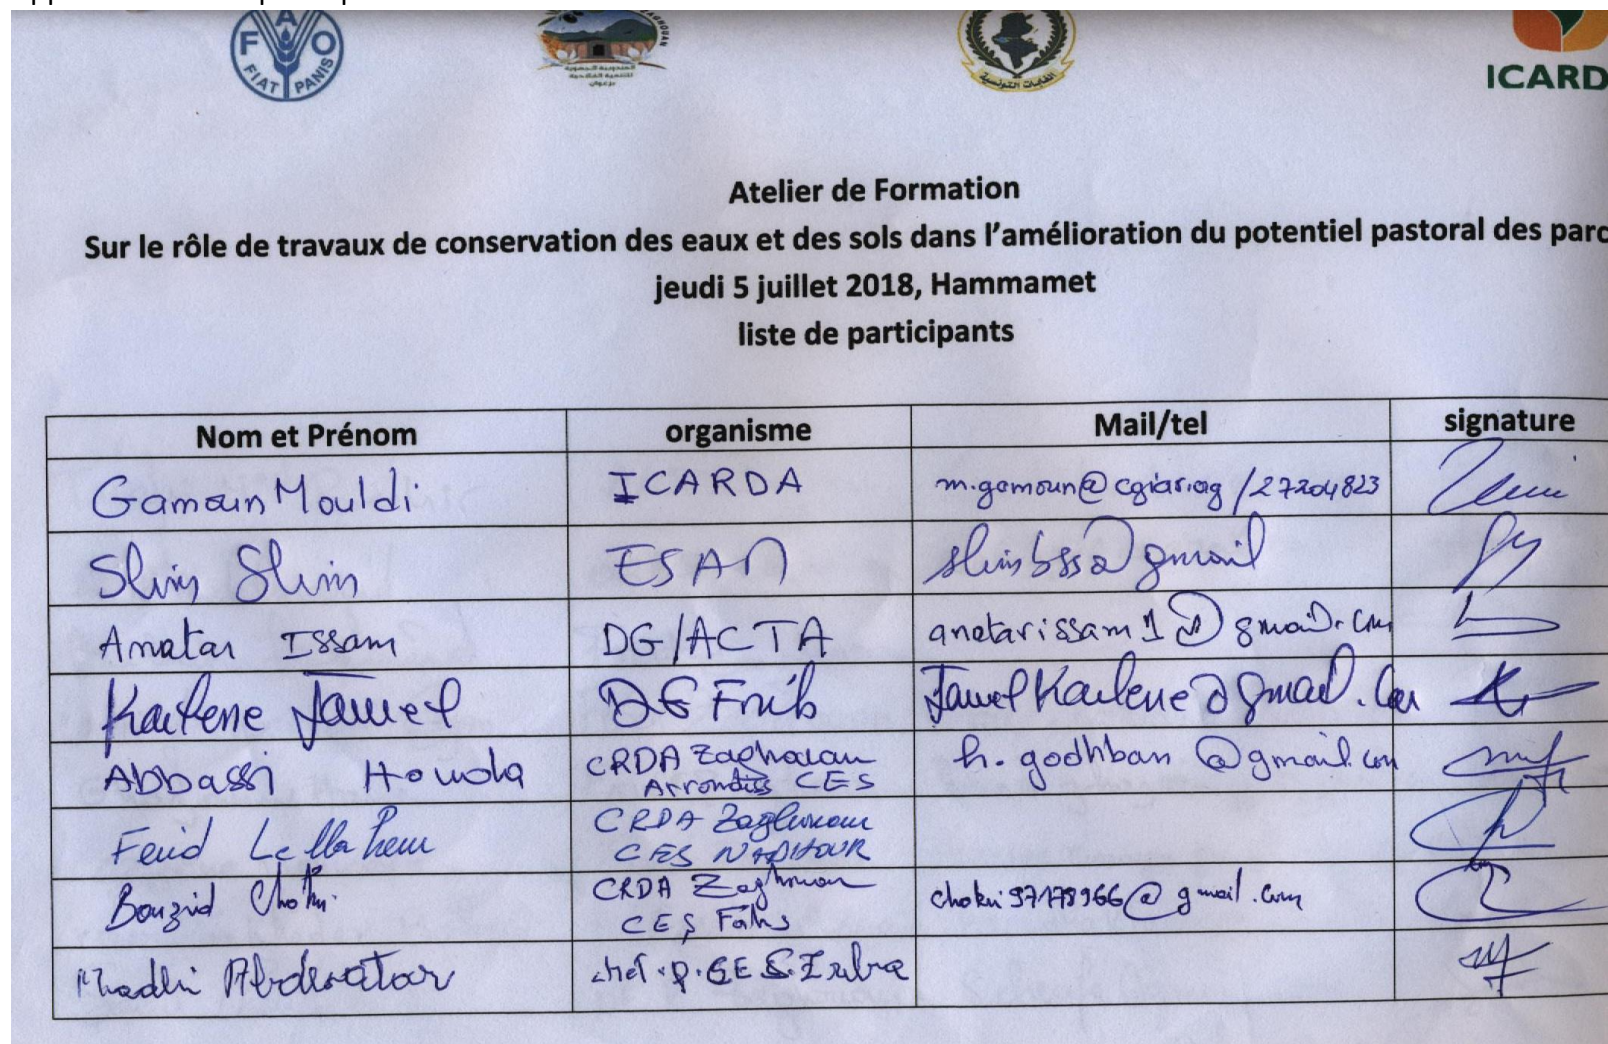 FAO
FIAT PANIS
الغابات التونسية
ICARD
Atelier de Formation
Sur le rôle de travaux de conservation des eaux et des sols dans l'amélioration du potentiel pastoral des parc
jeudi 5 juillet 2018, Hammamet
liste de participants
Nom et Prénom organisme Mail/tel signature
Gamoun Mouldi ICARDA m.gamoun@cgiar.org /27204823
Slim Slim ESAM slimbss@gmail
Anatar Issam DG/ACTA anatarissam1@gmail.com
Kailene Jamel DG Jamelkailene@gmail.com
Abbassi Houda CRDA Zaghouan h.godhban@gmail.com
Arrondiss CES
Ferid CRDA Zaghouan
CES NADHOUR
Bouzid Chokri CRDA Zaghouan chokri97178966@gmail.com
CES Fahs